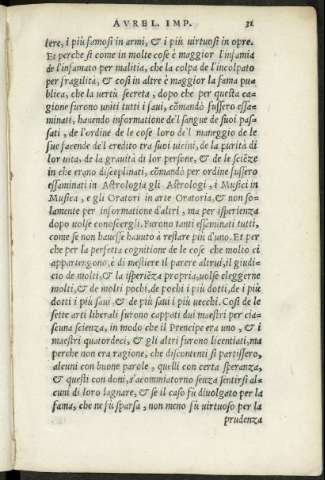 AVREL. IMP. 31
tere, i più famosi in armi, & i più virtuosi in opre.
Et perche si come in molte cose è maggior l'infamia
de l'infamato per malitia, che la colpa de l'incolpato
per fragilita, & così in altre è maggior la fama pu=
blica, che la uertù secreta, dopo che per questa ca=
gione furono uniti tutti i saui, cõmandò fussero essa=
minati, hauendo informatione del sangue de suoi pas=
sati, de l'ordine de le cose loro del maneggio de le
sue facende del credito tra suoi uicini, de la purità di
lor uita, de la grauità di lor persone, & de le sciẽze
in che erano disceplinati, cõmandò per ordine fussero
essaminati in Astrologia gli Astrologi, i Musici in
Musica, e gli Oratori in arte Oratoria, & non so=
lamente per informatione d'altri, ma per isperienza
dopo uolse conoscergli. Furono tanti essaminati tutti,
come se non hauesse hauuto à restare piu d'uno. Et per
che per la perfetta cognitione de le cose che molto ci
appartengono, è di mestiere il parere altrui, il giudi=
cio de molti, & la isperiẽza propria, uolse eleggerne
molti, & de molti pochi, de pochi i più dotti, de i più
dotti i più saui, & de più saui i più uecchi. Così de le
sette arti liberali furono cappati dui maestri per cia=
scuna scienza, in modo che il Prencipe era uno, & i
maestri quatordeci, & gli altri furono licentiati, ma
perche non era ragione, che discontenti si partissero,
alcuni con buone parole, quelli con certa speranza,
& questi con doni, s'acommiatorno senza sentirsi al=
cuni di loro lagnare, & se il caso fù diuolgato per la
fama, che ne fù sparsa, non meno fù uirtuoso per la
prudenza